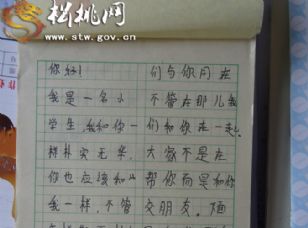 松桃网
www.stw.gov.cn
你好！
我是一名小
学生，我和你一
样朴实无华，
你也应该和
我一样，不管
们与你同在
不管在那儿我
们和你在一起。
大家不是在
帮你而是和你
交朋友。下面